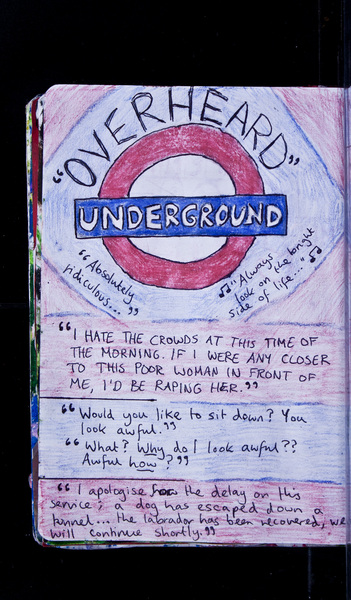 "OVERHEARD"
UNDERGROUND
"Absolutely
ridiculous..."
"Always
look on the bright
side of life..."
"I HATE THE CROWDS AT THIS TIME OF
THE MORNING. IF I WERE ANY CLOSER
TO THIS POOR WOMAN IN FRONT OF
ME, I'D BE RAPING HER."
"Would you like to sit down? You
look awful."
"What? Why do I look awful??
Awful how?"
"I apologise for the delay on this
service; a dog has escaped down a
tunnel... the labrador has been recovered, we
will continue shortly."